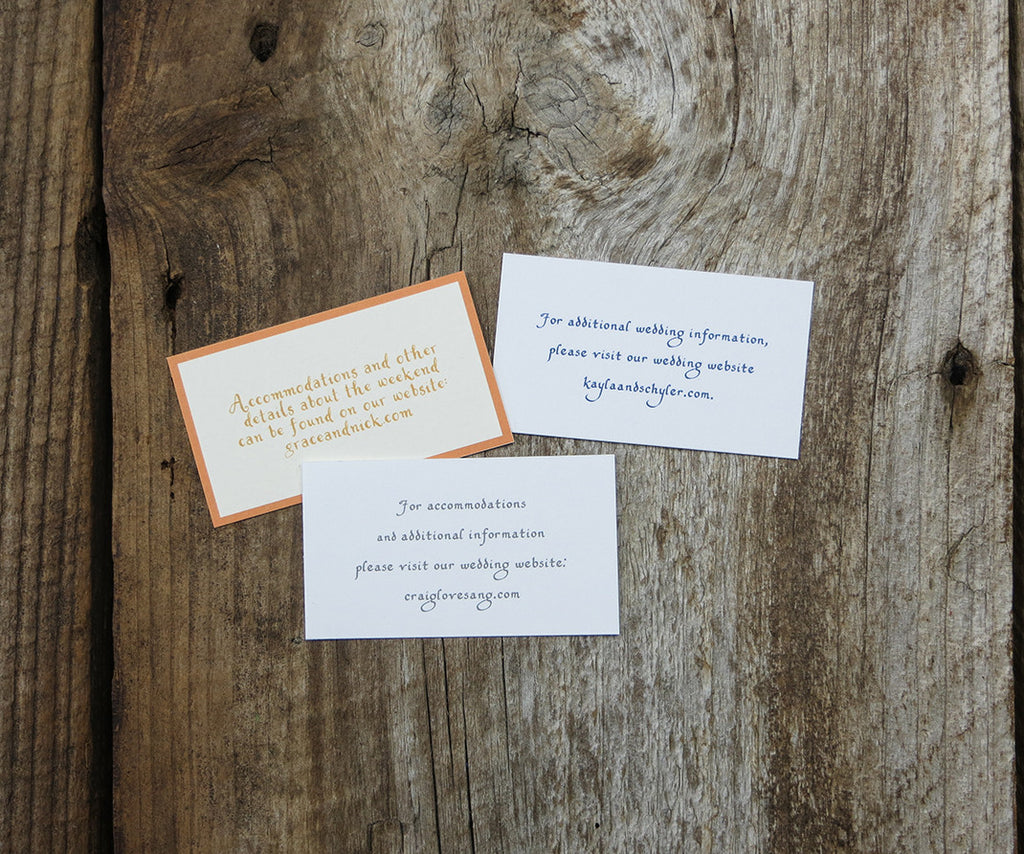 Accommodations and other
details about the weekend
can be found on our website:
graceandnick.com
For additional wedding information,
please visit our wedding website
kaylaandschyler.com.
For accommodations
and additional information
please visit our wedding website:
craiglovesang.com